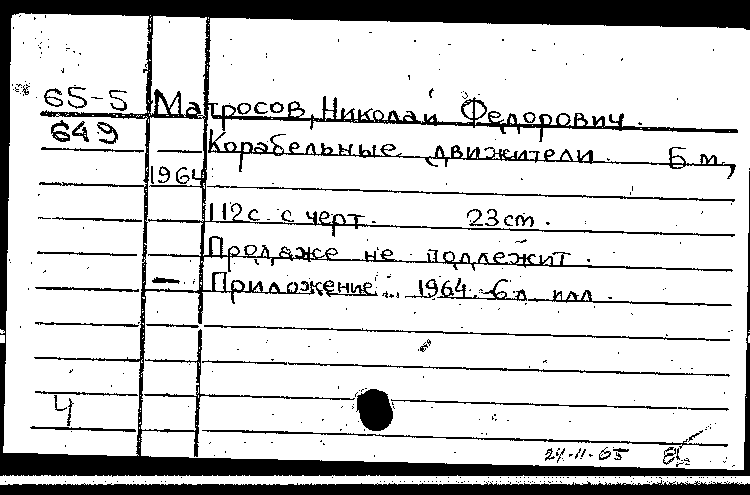 65-5 Матросов, Николай Федорович.
649 Корабельные движители. Б м,
1964
112с. с черт. 23cm.
Продаже не подлежит.
— Приложение... 1964. -6 л. илл.
4
24-11-65